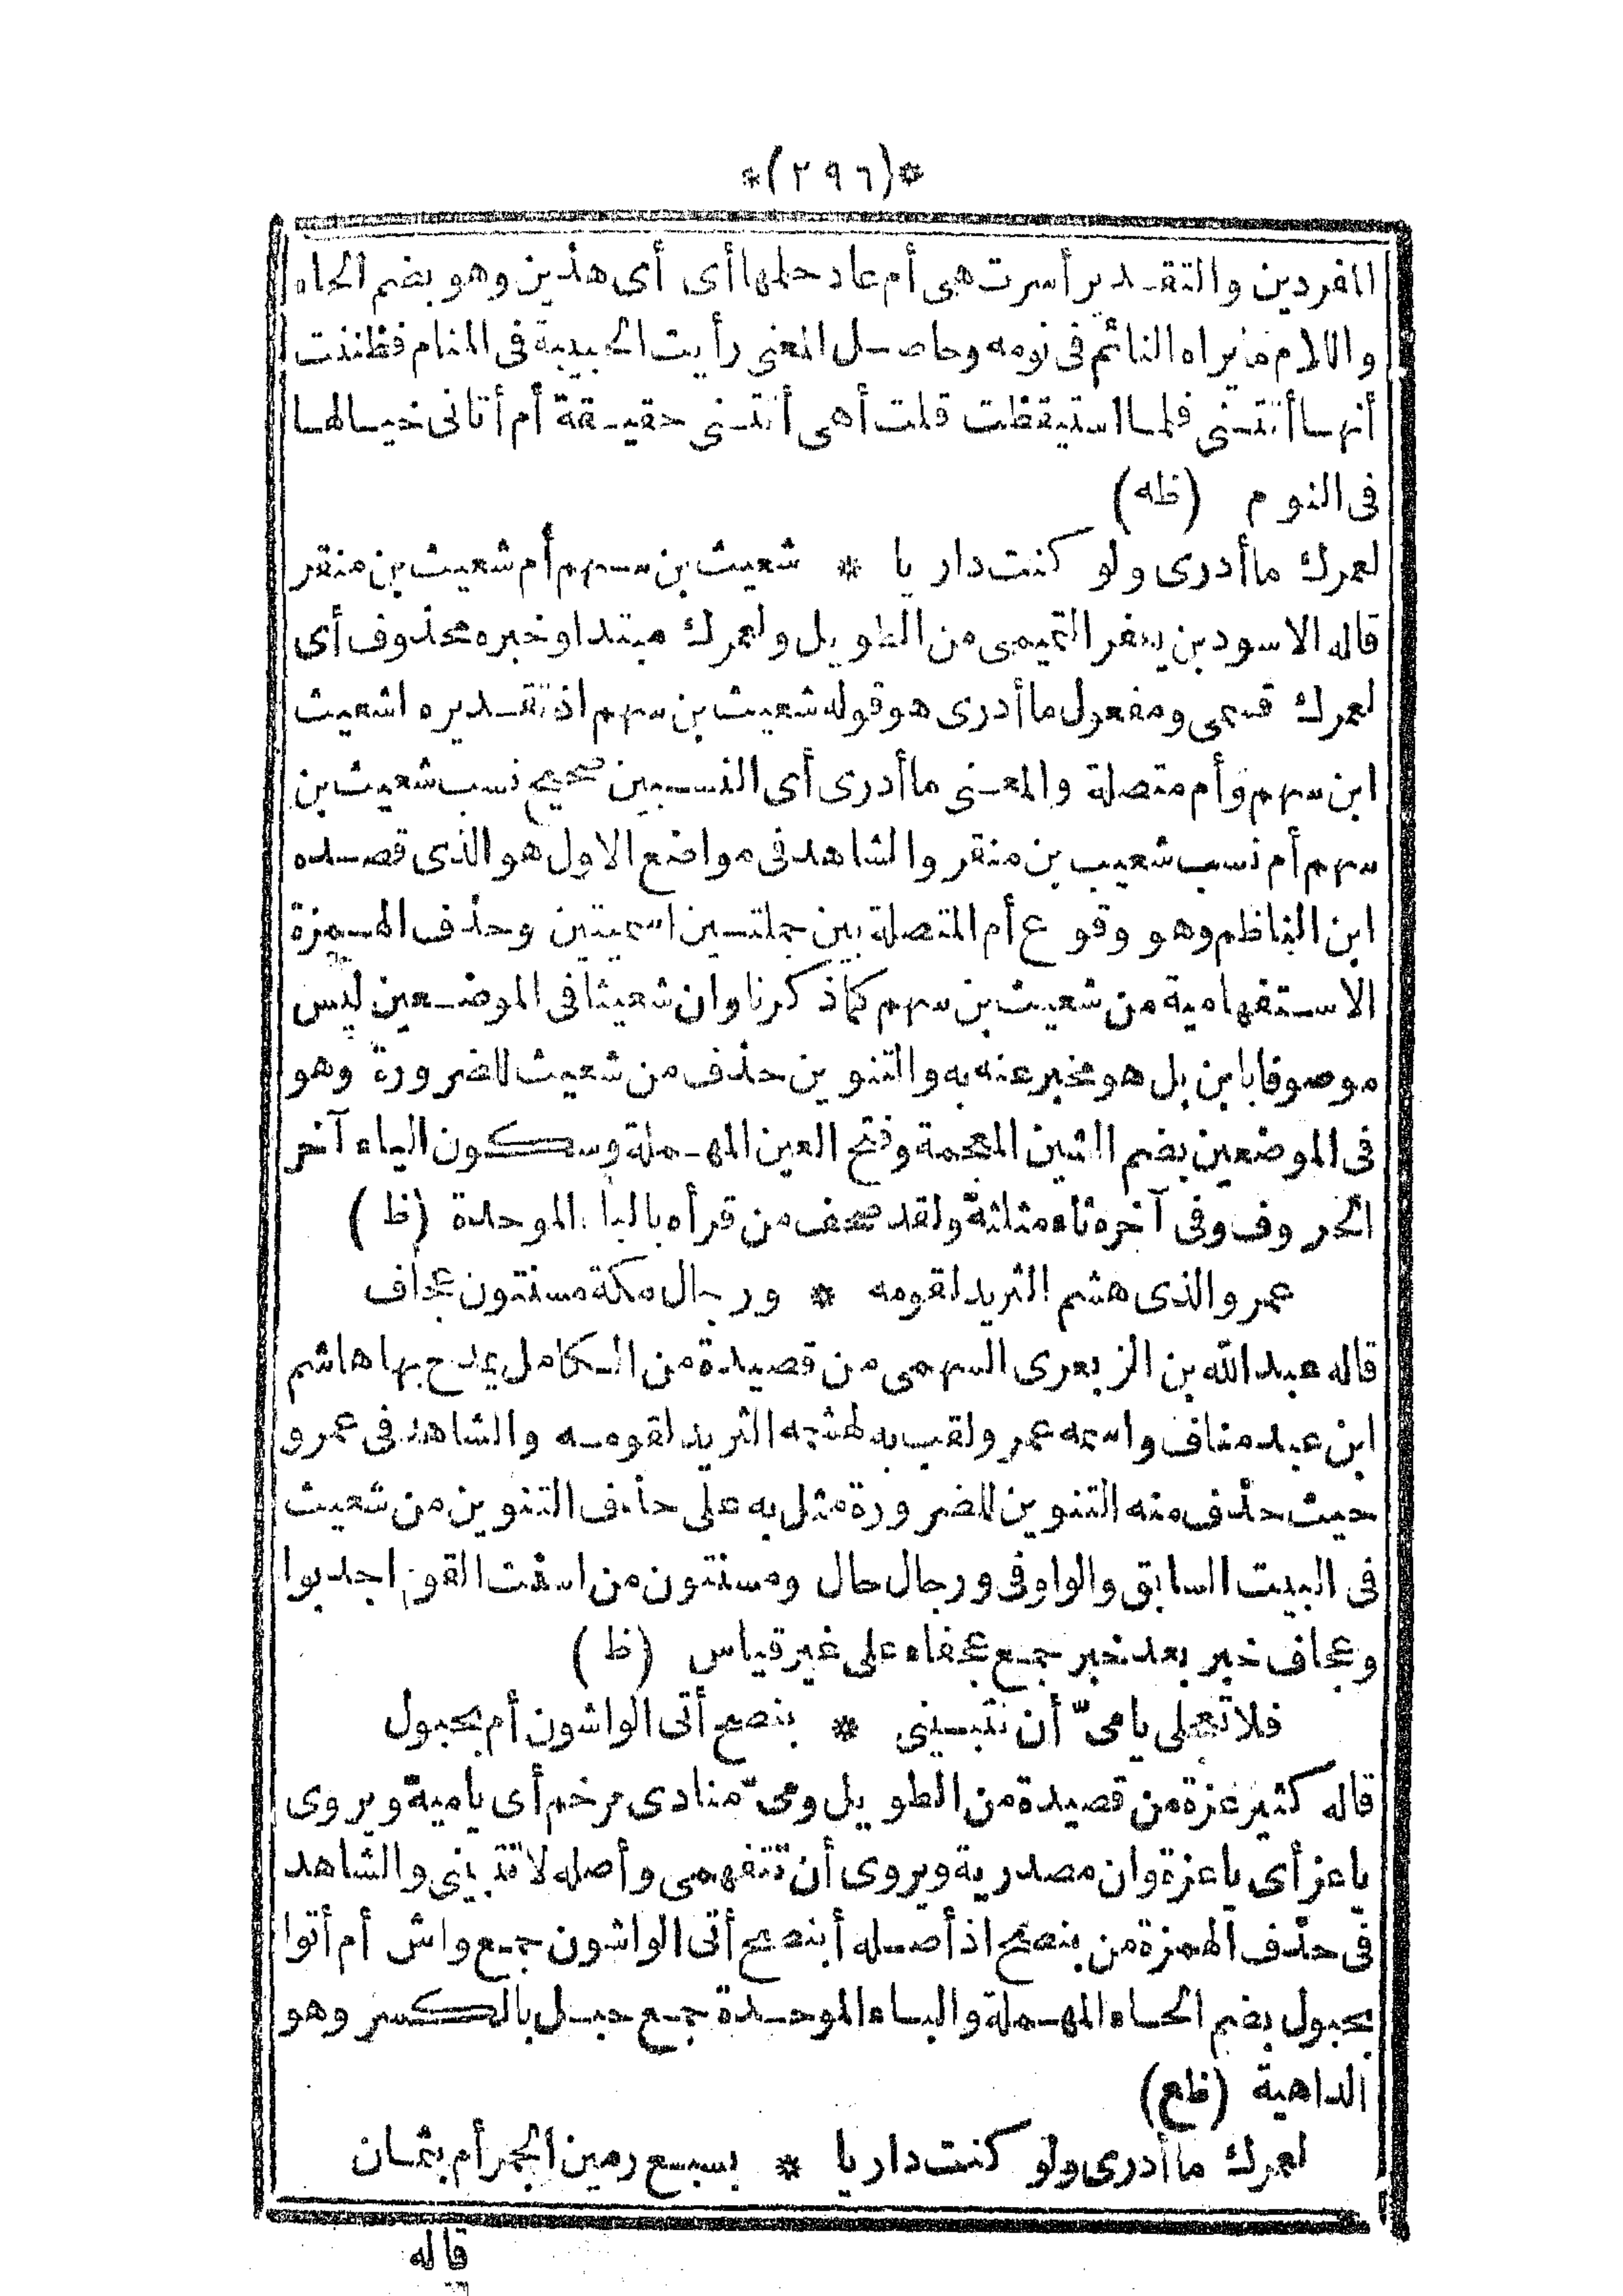 *(٢٩٦)*
المفردين والتقدير أسرت هى أم عاد حلمها أى أى هذين وهو بضم الحاء
واللام ما يراه النائم فى نومه وحاصل المعنى رأيت الحبيبة فى المنام فظننت
أنها أتتنى فلما استيقظت قلت أهى أتتنى حقيقة أم أتانى خيالها
فى النوم (ظه)
لعمرك ما أدرى ولو كنت داريا * شعيث بن سهم أم شعيث بن منقر
قاله الاسود بن يعفر التميمى من الطويل ولعمرك مبتدا وخبره محذوف أى
لعمرك قسمى ومفعول ما أدرى هو قوله شعيث بن سهم اذ تقديره اشعيث
ابن سهم وأم متصلة والمعنى ما أدرى أى النسبين صحيح نسب شعيث بن
سهم أم نسب شعيب بن منقر والشاهد فى مواضع الاول هو الذى قصده
ابن الناظم وهو وقوع أم المتصلة بين جملتين اسميتين وحذف الهمزة
الاستفهامية من شعيث بن سهم كما ذكرنا وان شعيثا فى الموضعين ليس
موصوفا بابن بل هو مخبر عنه به والتنوين حذف من شعيث للضرورة وهو
فى الموضعين بضم الشين المعجمة وفتح العين المهملة وسكون الياء آخر
الحروف وفى آخره ثاء مثلثة ولقد صحف من قرأه بالباء الموحدة (ظ)
عمرو الذى هشم الثريد لقومه * ورجال مكة مسنتون عجاف
قاله عبد الله بن الزبعرى السهمى من قصيدة من الكامل يمدح بها هاشم
ابن عبد مناف واسمه عمر ولقب به لهشمه الثريد لقومه والشاهد فى عمرو
حيث حذف منه التنوين للضرورة مثل به على حذف التنوين من شعيث
فى البيت السابق والواو فى ورجال حال ومسنتون من اسنت القوم اجدبوا
وعجاف خبر بعد خبر جمع عجفاء على غير قياس (ظ)
فلا تعجلى يا مىّ أن تتبينى * بنصح أتى الواشون أم بحبول
قاله كثير عزة من قصيدة من الطويل ومىّ منادى مرخم أى يا مية ويروى
يا عز أى يا عزة وان مصدرية ويروى أن تتفهمى وأصله لا تتبينى والشاهد
فى حذف الهمزة من بنصح اذ أصله أبنصح أتى الواشون جمع واش أم أتوا
بحبول بضم الحاء المهملة والباء الموحدة جمع حبل بالكسر وهو
الداهية (ظع)
لعمرك ما أدرى ولو كنت داريا * بسبع رمين الجمر أم بثمان
قاله